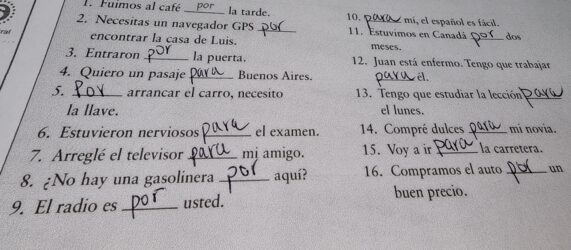 1. Fuimos al café por la tarde.
2. Necesitas un navegador GPS por
encontrar la casa de Luis.
3. Entraron por la puerta.
4. Quiero un pasaje para Buenos Aires.
5. Por arrancar el carro, necesito
la llave.
6. Estuvieron nerviosos para el examen.
7. Arreglé el televisor para mi amigo.
8. ¿No hay una gasolinera por aquí?
9. El radio es por usted.
10. para mí, el español es fácil.
11. Estuvimos en Canadá por dos
meses.
12. Juan está enfermo. Tengo que trabajar
para él.
13. Tengo que estudiar la lección para
el lunes.
14. Compré dulces para mi novia.
15. Voy a ir para la carretera.
16. Compramos el auto por un
buen precio.